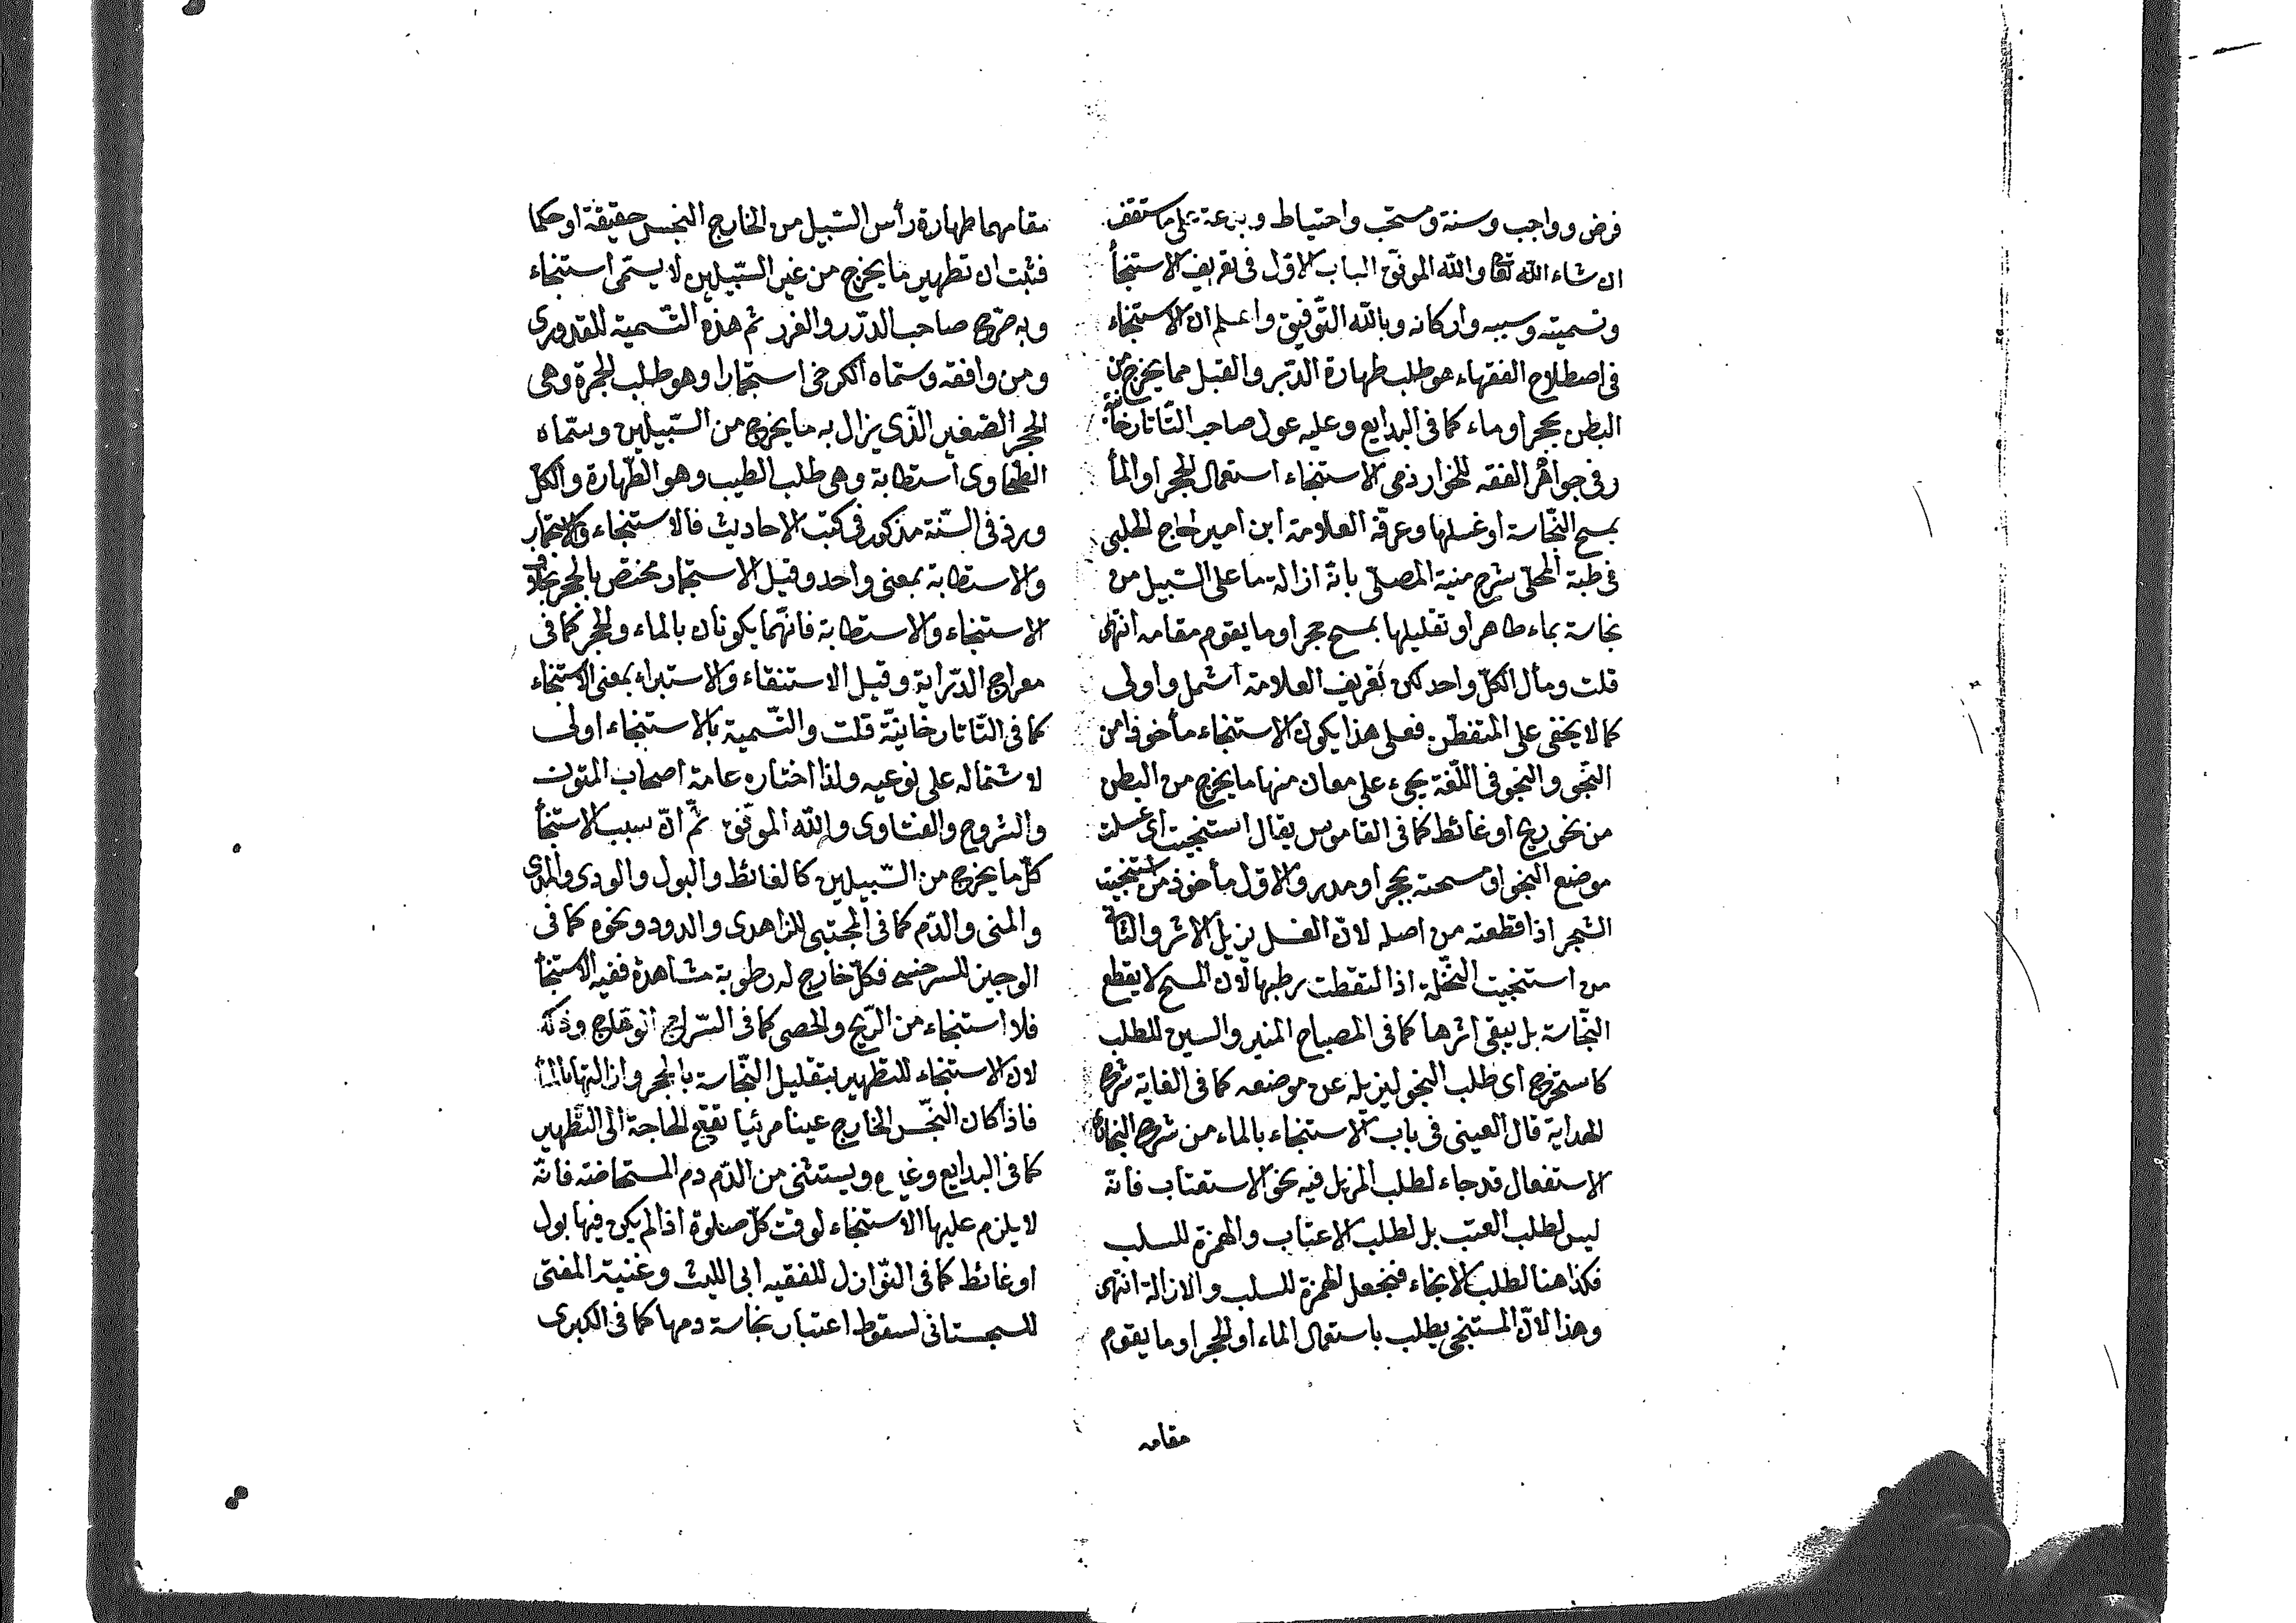 فرض وواجب وسنة ومستحب واحتياط وبدعة على ما ستقف
ان شاء الله تعالى والله الموفق الباب الاول فى تعريف الاستنجأ
وتسميته وسببه واركانه وبالله التوفيق واعلم ان الاستنجاء
فى اصطلاح الفقهاء هو طلب طهارة الدّبر والقبل مما يخرج من
البطن بحجر او ماء كما فى البدايع وعليه عول صاحب التّاتارخانية
وفى جواهر الفقه للخوارزمى الاستنجاء استعمال الحجر او المأ
بمسح النّجاسة او غسلها وعرفّه العلامة ابن امير الحاج الحلبى
فى حلبة المحلّى شرح منية المصلّى بانّه ازالة ما على السّبيل من
نجاسة بماء طاهر او تقليلها بمسح حجر او ما يقوم مقامه انتهى
قلت ومأل الكلّ واحد لكن تعريف العلامة اشمل واولى
كما لا يخفى على المتفطّن فعلى هذا يكون الاستنجاء مأخوذا من
النّجو والنجو فى اللّغة يجىء على معان منها ما يخرج من البطن
من نحو ريح او غائط كما فى القاموس يقال استنجيت اى غسلت
موضع النجو او مسحته بحجر او مدر والاول مأخوذ من استنجيت
الشجر اذا قطعته من اصله لانّ الغسل يزيل الاثر والثانى
من استنجيت النّخلة اذا التقطت رطبها لانّ المسح لا يقطع
النّجاسة بل يبقى اثرها كما فى المصباح المنير والسين للطلب
كاستخرج اى طلب النجو ليزيله عن موضعه كما فى الغاية شرح
الهداية قال العينى فى باب الاستنجاء بالماء من شرح البخارى
الاستفعال قد جاء لطلب المزيل فيه نحو الاستعتاب فانّه
ليس لطلب العتب بل لطلب الاعتاب والهمزة للسلب
فكذا هنا لطلب الانجاء فنجعل الهمزة للسلب والازالة انتهى
وهذا لانّ المستنجى يطلب باستعمال الماء او الحجر او ما يقوم
مقامه
مقامهما طهارة رأس السّبيل من الخارج النجس حقيقة او حكما
فثبت ان تطهير ما يخرج من غير السّبيلين لا يسمّى استنجاء
وبه صرّح صاحب الدّرر والغرر ثم هذه التّسمية للقدورى
ومن وافقه وسمّاه الكرخى استجمارا وهو طلب الجمرة وهى
الحجر الصّغير الّذى يزال به ما يخرج من السّبيلين وسمّاه
الطّحاوى استطابة وهى طلب الطيب وهو الطّهارة والكلّ
ورد فى السّنة مذكور فى كتب الاحاديث فالاستنجاء والاستجمار
والاستطابة بمعنى واحد وقيل الاستجمار مختص بالحجر بخلاف
الاستنجاء والاستطابة فانّهما يكونان بالماء والحجر كما فى
معراج الدّراية وقيل الاستنقاء والاستبراء بمعنى الاستنجاء
كما فى التّاتارخانيّة قلت والتّسمية بالاستنجاء اولى
لاشتماله على نوعيه ولذا اختاره عامة اصحاب المتون
والشروح والفتاوى والله الموفّق ثمّ انّ سبب الاستنجأ
كلّ ما يخرج من السّبيلين كالغائط والبول والودى والمذى
والمنى والدّم كما فى المجتبى للزاهدى والدود ونحوه كما فى
الوجيز للسرخسى فكلّ خارج له رطوبة مشاهدة ففيه الاستنجأ
فلا استنجاء من الرّيح والحصى كما فى السّراج الوهّاج وذلك
لان الاستنجاء للتطهير بتقليل النّجاسة بالحجر وازالتها بالمأ
فاذا كان النّجس الخارج عينا مرئيا تقع الحاجة الى التّطهير
كما فى البدايع وغيره ويستثنى من الدّم دم المستحاضة فانّه
لا يلزم عليها الاستنجاء لوقت كلّ صلوة اذا لم يكن فيها بول
او غائط كما فى النّوازل للفقيه ابى الليث وغنية المفتى
للسجستانى لسقوط اعتبار نجاسة دمها كما فى الكبرى